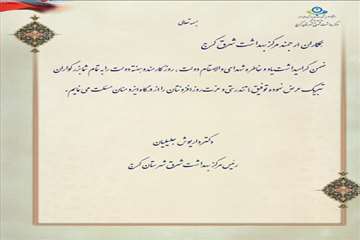 بسمه تعالی
همکاران ارجمند مرکز بهداشت شرق کرج
ضمن گرامیداشت یاد و خاطره شهدای والامقام دولت، روز کارمند و هفته دولت را به تمام شما بزرگواران
تبریک عرض نموده توفیق، تندرستی و عزت روز افزونتان را از درگاه ایزد منان مسئلت می نمایم.
دکتر داریوش جلیلیان
رئیس مرکز بهداشت شرق شهرستان کرج